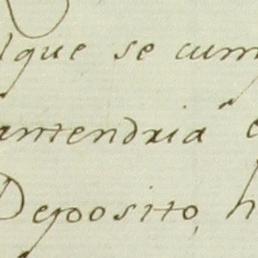 que se cum
antendria e
Deposito, h